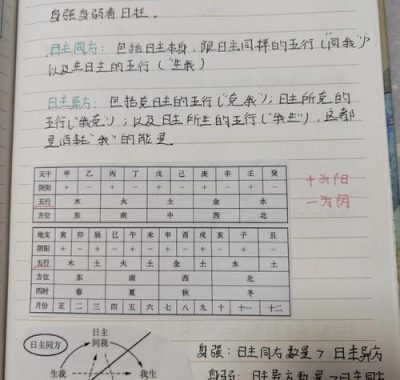 身强身弱看日柱。
日主同方：包括日主本身，跟日主同样的五行（"同我"）
以及生日主的五行（"生我）
日主异方：包括克日主的五行（"克我"）；日主所克的
五行（"我克"）；以及日主所生的五行（"我生"），这都
是消耗"我"的能量
天干 甲 乙 丙 丁 戊 己 庚 辛 壬 癸
阴阳 + - + - + - + - + -
五行 木 火 土 金 水
方位 东 南 中 西 北
十为阳
一为阴
地支 寅 卯 辰 巳 午 未 申 酉 戌 亥 子 丑
阴阳 + - + - + - + - + - + -
五行 木 土 火 土 金 土 水 土
方位 东 南 西 北
四时 春 夏 秋 冬
月份 正 二 三 四 五 六 七 八 九 十 十一 十二
日主同方
日主
同我
生我
我生
身强：日主同方数量 > 日主异方
身弱：日主异方数量 > 日主同方